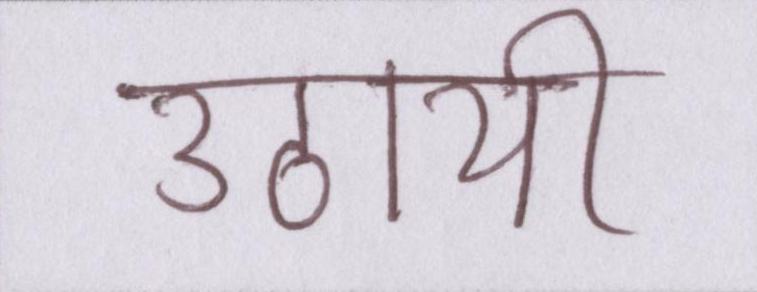 उठायी